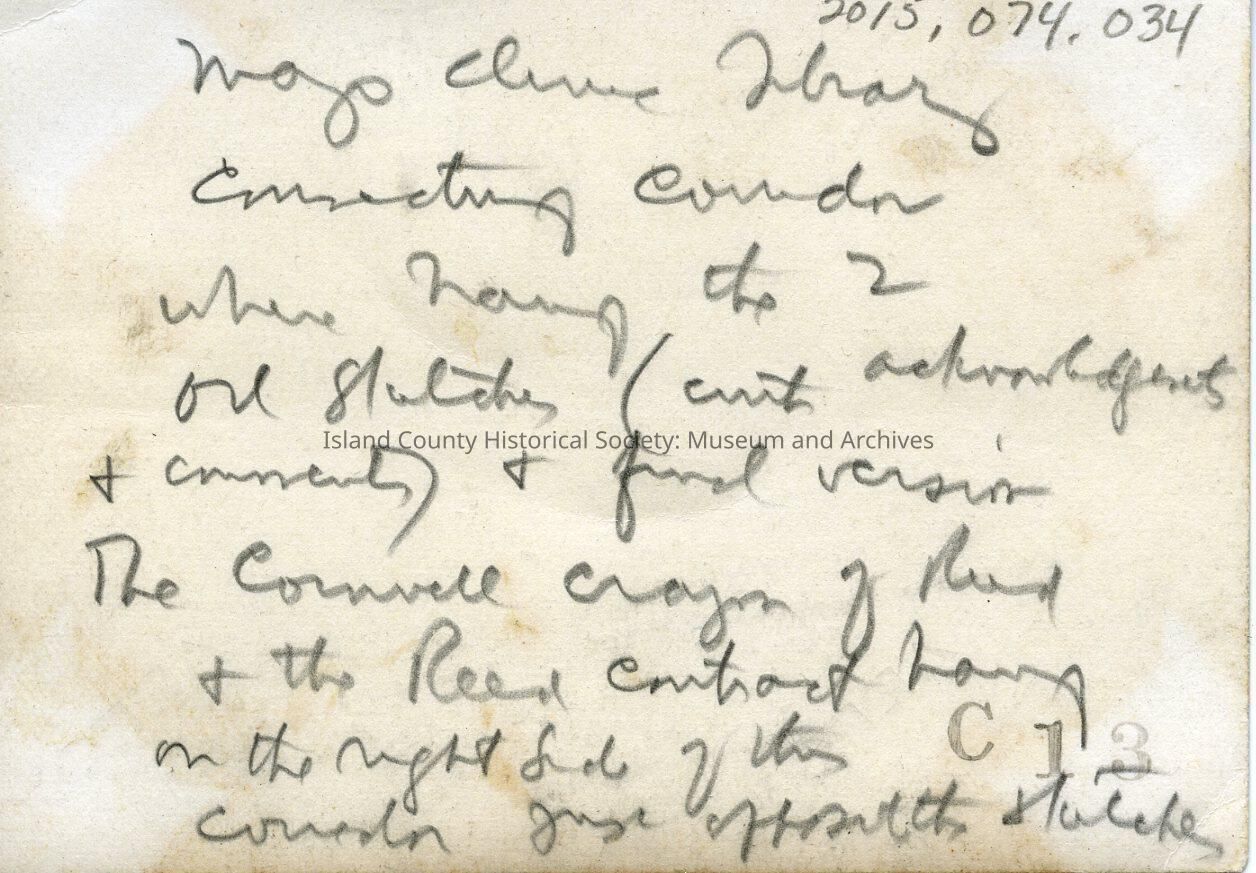 2015, 074, 034
Mayo Clinic Library
Connecting Corridor
where hang the 2
oil sketches (with acknowledgments
Island County Historical Society: Museum and Archives
+ comments) + final version
The Cornwell crayon of Reed
+ the Reed contract hang
C 13
on the right side of this
corridor just opposite the sketches